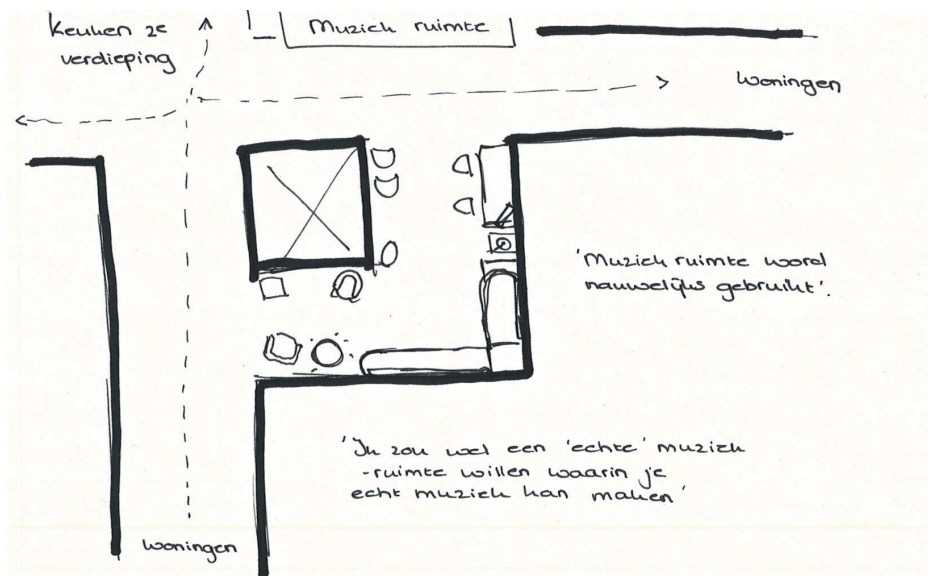 Keuken 2e
verdieping
Muziek ruimte
woningen
'Muziek ruimte word
nauwelijks gebruikt'.
'Ik zou wel een 'echte' muziek
-ruimte willen waarin je
echt muziek kan maken'
woningen